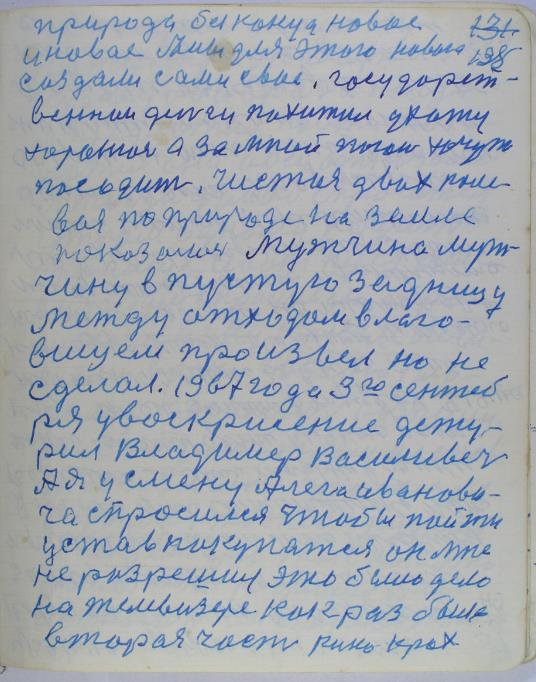 природа бесконца новое 131
иновое Мыи для этого нового 198
создали сами свое. государст-
венной деньги похитил ухожу
хоронюся а за мной погон хочут
посадит. чистыя двох поле-
воя по природе на земле
показался Мужчина муж-
чину в пустую задницу
между отходом влаго-
вищем произвел но не
сделал. 1967 года 3го сентеб
ря увоскрисение дежу-
рил Владимер Василивеч
А я у смену Алега иванови-
ча спросился чтобы пойти
у став покупатся он мне
не разрешил это было дело
на телевизере как раз была
вторая част кино крах